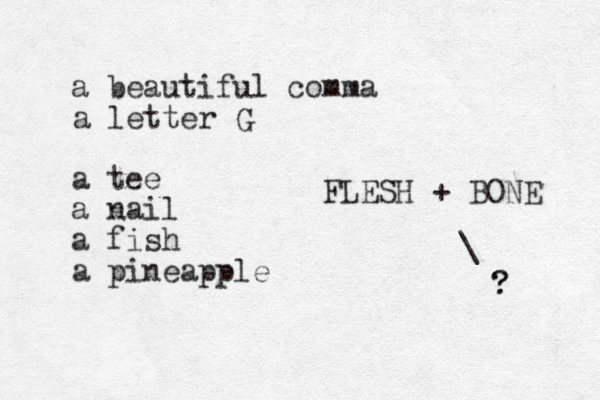 a beautiful comma
a letter G
a tee
a nail
a fish
a pineapple
FLESH + BONE
\
?